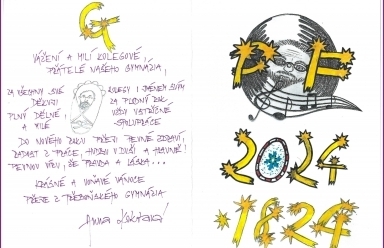 G
VÁŽENÍ A MILÍ KOLEGOVÉ,
PŘÁTELÉ NAŠEHO GYMNÁZIA,
ZA VŠECHNY SVÉ KOLEGY I JMÉNEM SVÝM
DĚKUJI ZA PLODNÝ ROK
PLNÝ DĚLNÉ VŽDY VSTŘÍCNÉ
A MILÉ SPOLUPRÁCE
DO NOVÉHO ROKU PŘEJI PEVNÉ ZDRAVÍ,
RADOST Z PRÁCE, V DUŠI A HLAVNĚ!
PEVNOU VÍRU, ŽE PRAVDA A LÁSKA...
KRÁSNÉ A VOŇAVÉ VÁNOCE
PŘEJE Z TŘEBOŇSKÉHO GYMNÁZIA
Anna
PF
2024
1824